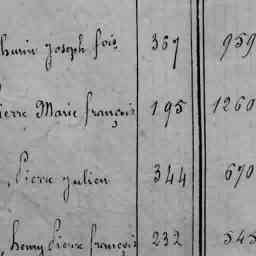 thurin Joseph fois 367 959
ierre Marie françois 195 1260
, Pierre Julien 344 670
, henry Pierre françois 232 545